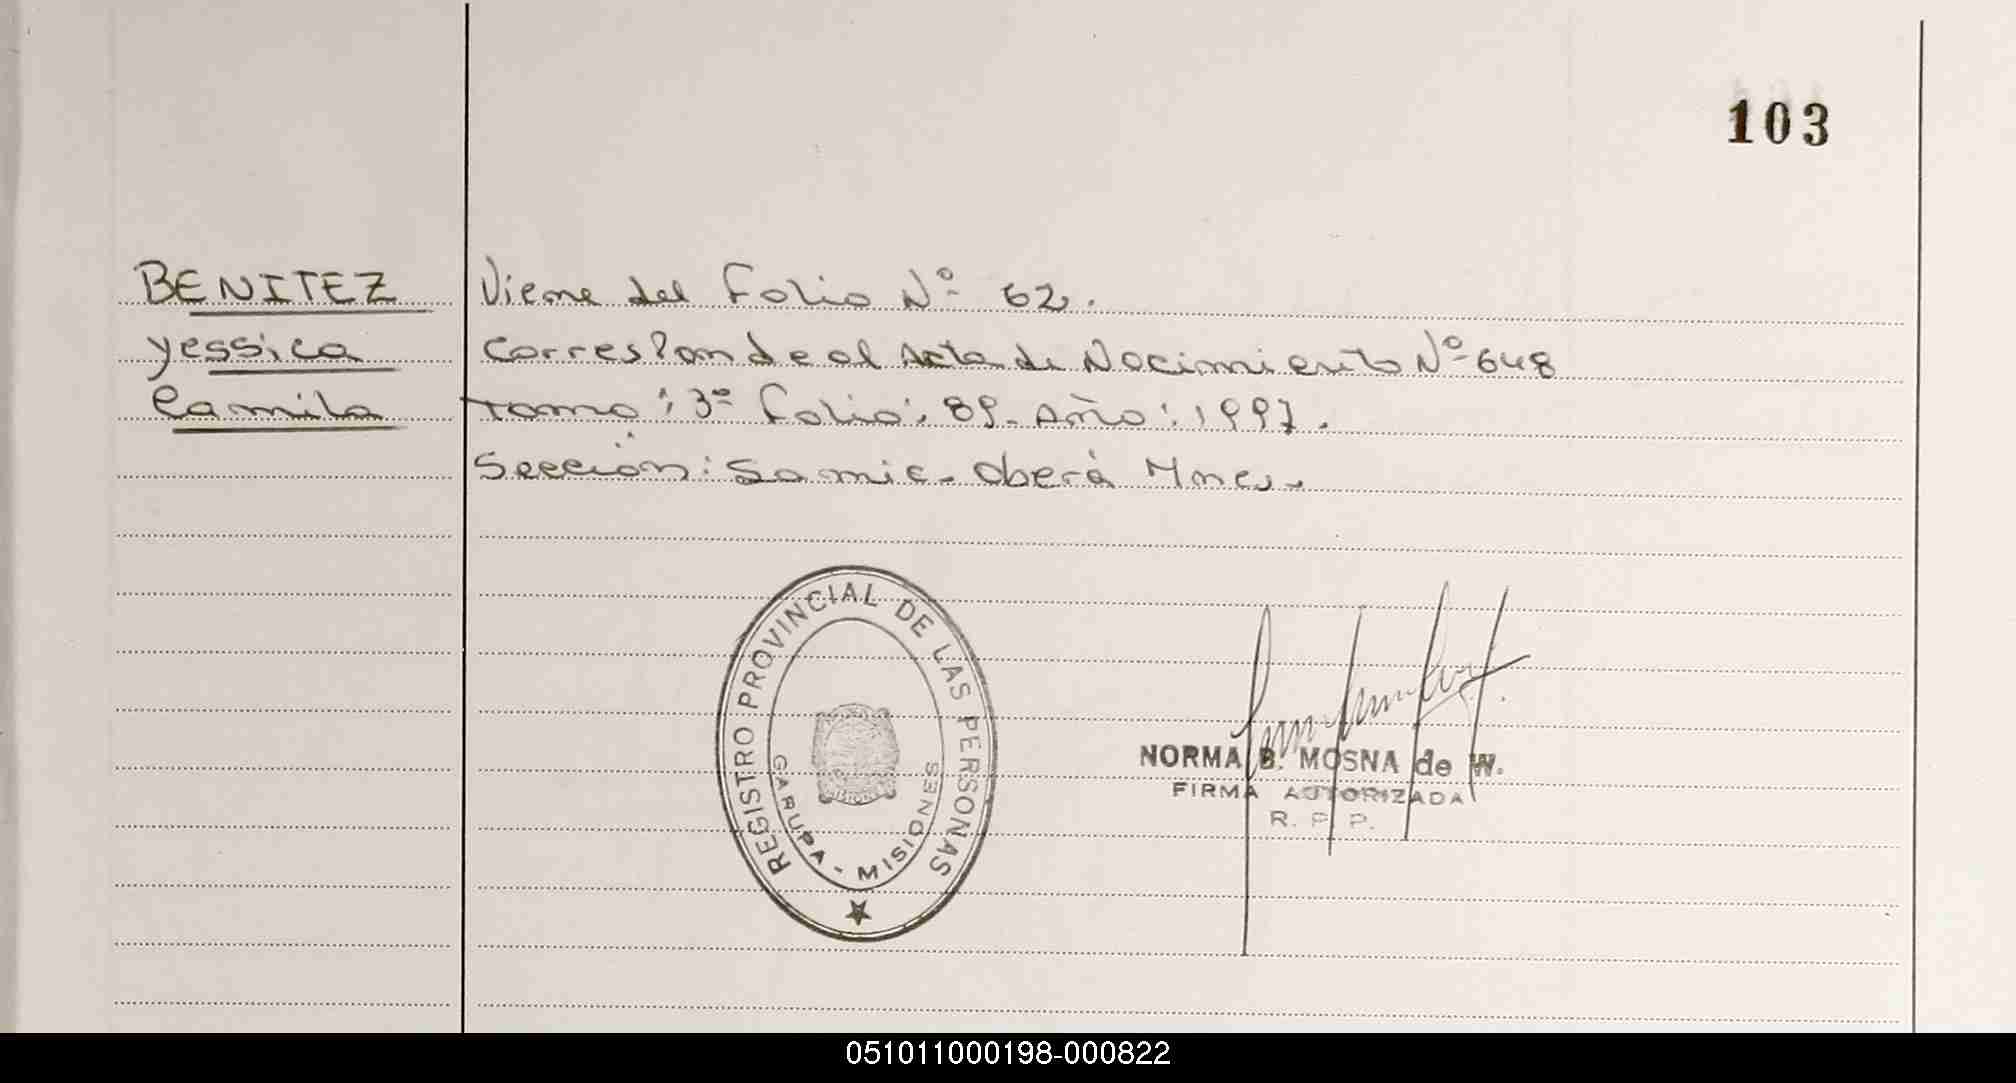 103
BENITEZ Viene del Folio Nº 62.
Yessica Corresponde al Acta de Nacimiento Nº 648
Camila Tomo: 3º Folio: 89. Año: 1997.
Sección: Samic. Oberá Mnes.
REGISTRO PROVINCIAL DE LAS PERSONAS
GARUPA - MISIONES
NORMA B. MOSNA de W.
FIRMA AUTORIZADA
R. P. P.
051011000198-000822